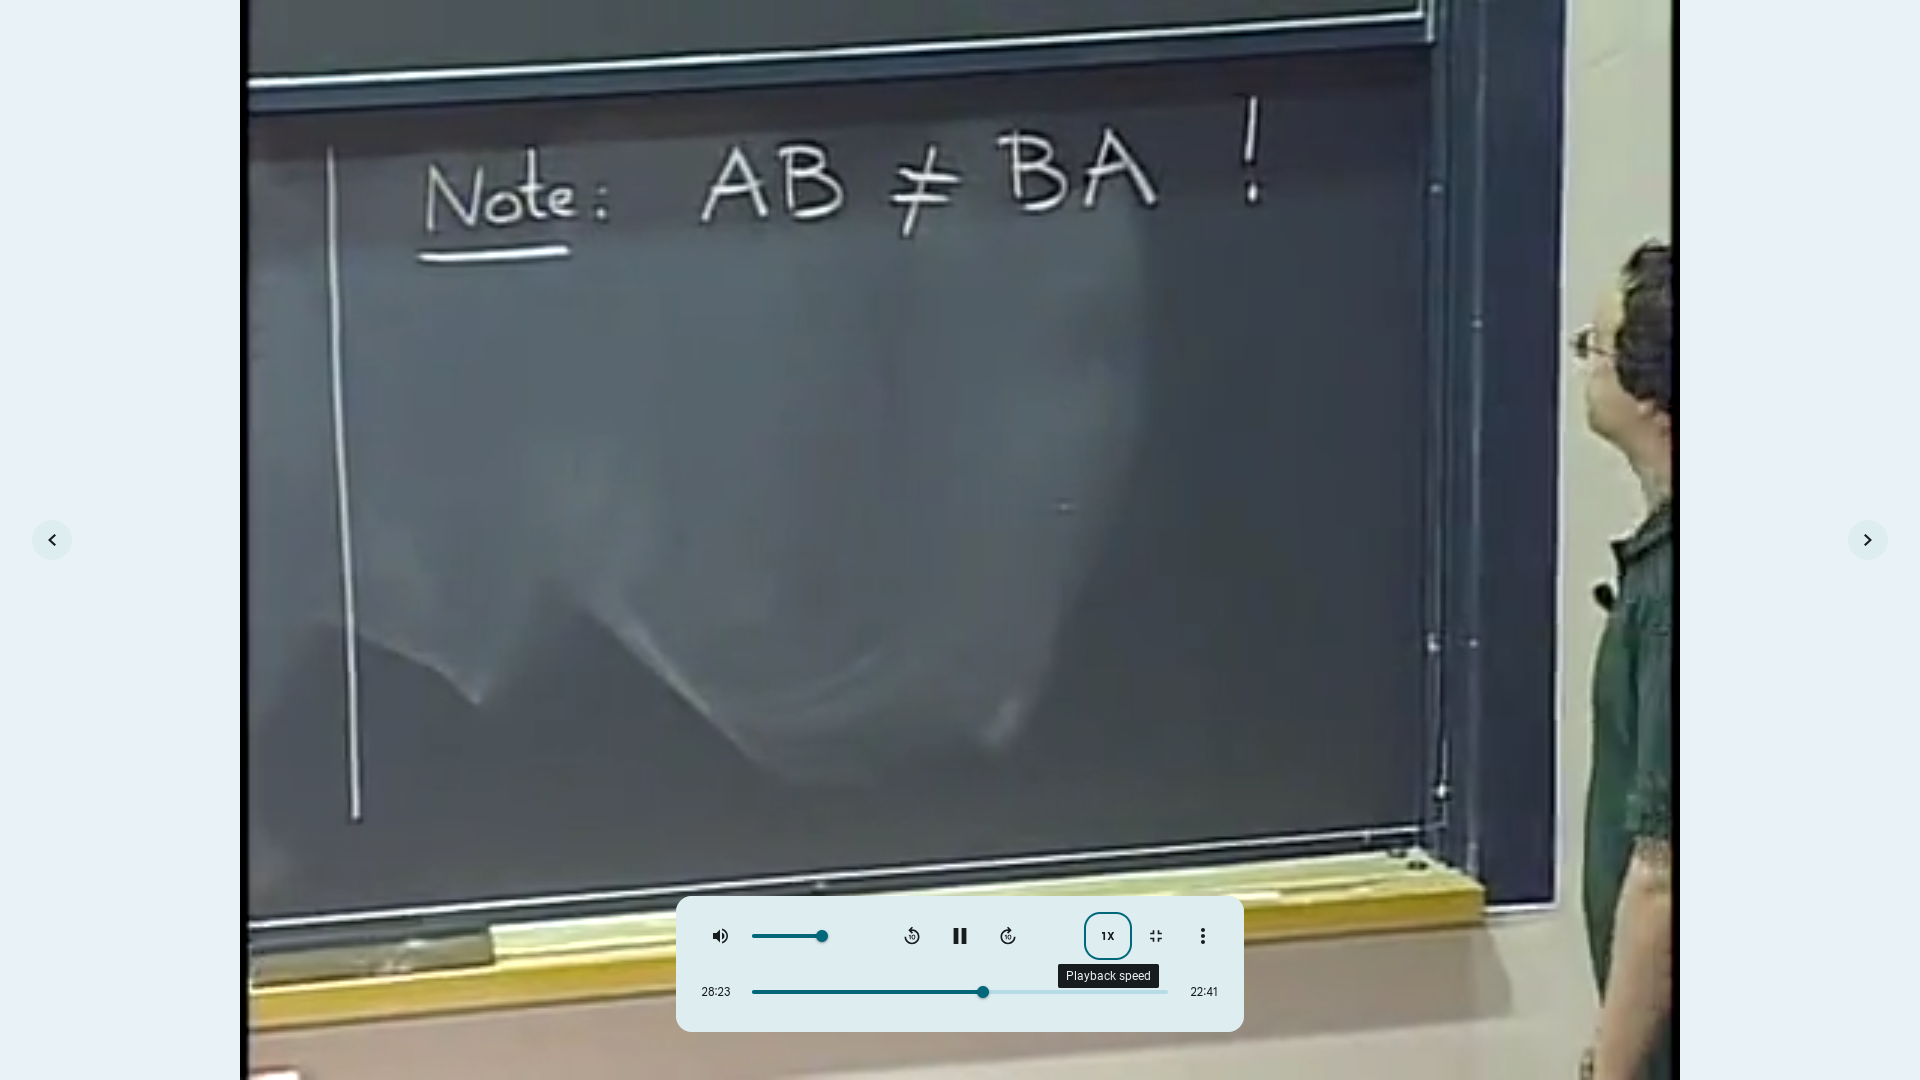 Note: AB ≠ BA !
10 10 1X
Playback speed
28:23 22:41